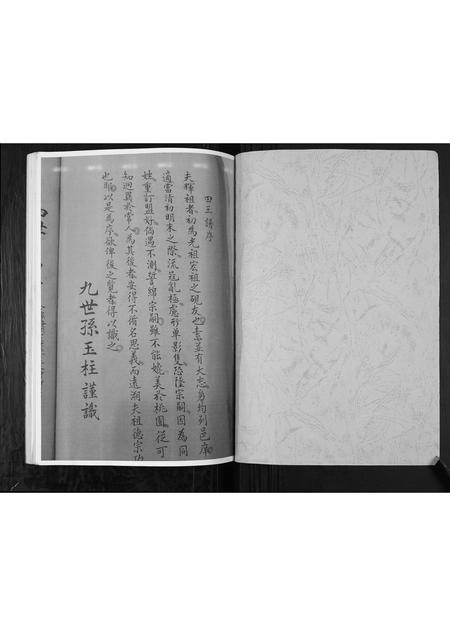 田王譜序
夫輝祖者初為光祖宏祖之硯友也素並有大志身均列邑庠
適當清初明末之際流寇亂極處形單影隻恐墜宗嗣因為同
姓重訂盟好倘遇不測誓綿宗嗣雖不能媲美於桃園從可
知迥異於常人為其後者安得不備名思義而遠溯夫祖德宗功
也哉以是為序欲俾後之覽者得以識之
九世孫玉柱謹識